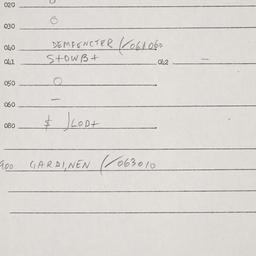 020
030 O
060 DEMPENCTER (/061060
061 StOWBt 062 —
050 O
060 —
080 $ JLODt
900 GARDI,NEN (/063010